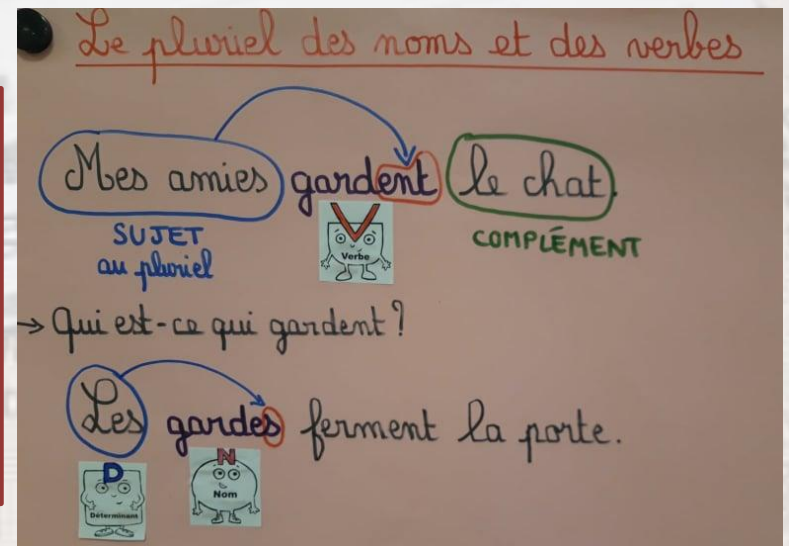 Le pluriel des noms et des verbes
Mes amies gardent le chat.
SUJET
au pluriel
V
Verbe
COMPLÉMENT
→ Qui est-ce qui gardent ?
Les gardes ferment la porte.
D
Déterminant
N
Nom